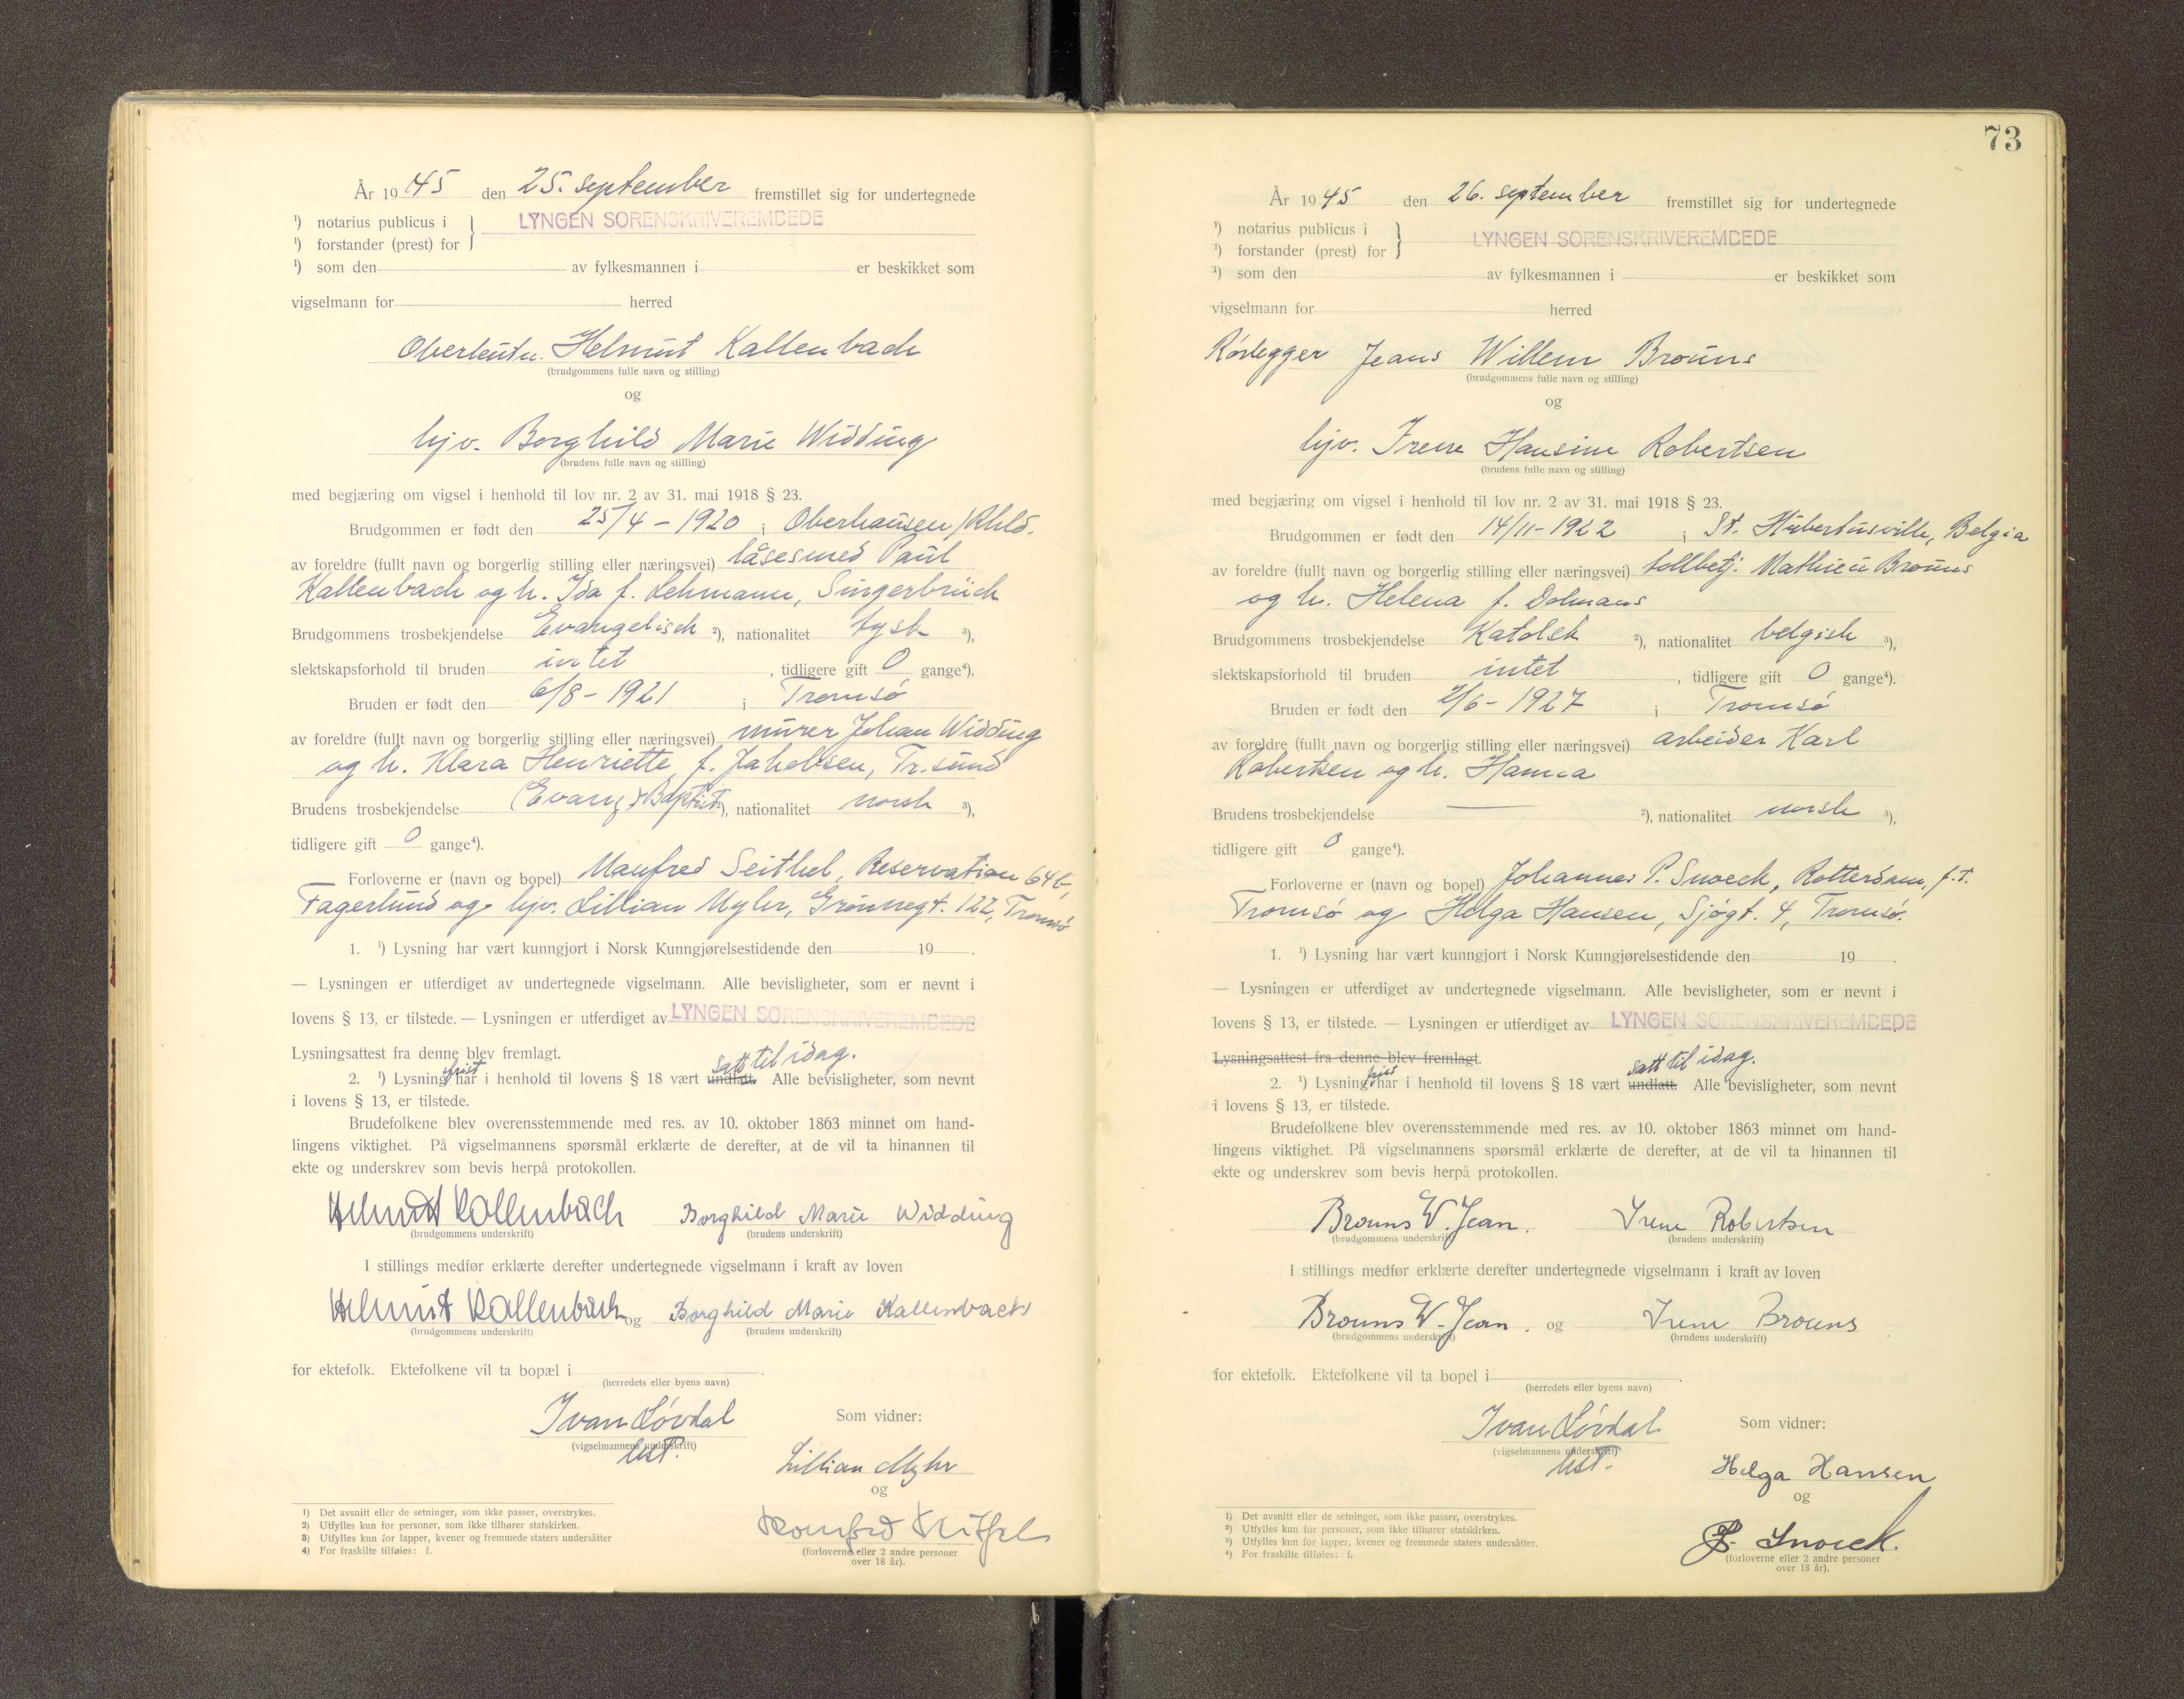 År 1945 den 25. september fremstillet sig for undertegnede
¹) notarius publicus i } LYNGEN SORENSKRIVEREMDEDE
¹) forstander (prest) for
¹) som den av fylkesmannen i er beskikket som
vigselmann for herred
Oberleutn. Helmut Kallenbach
(brudgommens fulle navn og stilling)
og
hjv. Borghild Marie Widding
(brudens fulle navn og stilling)
med begjæring om vigsel i henhold til lov nr. 2 av 31. mai 1918 § 23.
Brudgommen er født den 25/4 - 1920 i Oberhausen/Rhld.
av foreldre (fullt navn og borgerlig stilling eller næringsvei) låsesmed Paul
Kallenbach og h. Ida f. Lehmann, Singerbrück
Brudgommens trosbekjendelse Evangelisch ²), nationalitet tysk ³),
slektskapsforhold til bruden intet, tidligere gift 0 gange⁴).
Bruden er født den 6/8 - 1921 i Tromsø
av foreldre (fullt navn og borgerlig stilling eller næringsvei) murer Johan Widding
og h. Klara Henriette f. Jakobsen, Tr.sund
Brudens trosbekjendelse (Evang. Baptist ²), nationalitet norsk ³),
tidligere gift 0 gange⁴).
Forloverne er (navn og bopel) Manfred Seithel, Reservation 64b,
Fagerlund og hjv. Lillian Myhr, Grønnegt. 122, Tromsø
1. ¹) Lysning har vært kunngjort i Norsk Kunngjørelsestidende den 19 .
— Lysningen er utferdiget av undertegnede vigselmann. Alle bevisligheter, som er nevnt i
lovens § 13, er tilstede. — Lysningen er utferdiget av LYNGEN SORENSKRIVEREMDEDE
Lysningsattest fra denne blev fremlagt.
satt til idag.
2. ¹) Lysningfrist har i henhold til lovens § 18 vært undlatt. Alle bevisligheter, som nevnt
i lovens § 13, er tilstede.
Brudefolkene blev overensstemmende med res. av 10. oktober 1863 minnet om hand-
lingens viktighet. På vigselmannens spørsmål erklærte de derefter, at de vil ta hinannen til
ekte og underskrev som bevis herpå protokollen.
Helmut Kallenbach Borghild Marie Widding
(brudgommens underskrift) (brudens underskrift)
I stillings medfør erklærte derefter undertegnede vigselmann i kraft av loven
Helmut Kallenbach og Borghild Marie Kallenbach
(brudgommens underskrift) (brudens underskrift)
for ektefolk. Ektefolkene vil ta bopæl i .
(herredets eller byens navn)
Ivan Løvdal Som vidner:
(vigselmannens underskrift)
kst.
Lillian Myhr
og
Manfred Seithel
(forloverne eller 2 andre personer
over 18 år).
1) Det avsnitt eller de setninger, som ikke passer, overstrykes.
2) Utfylles kun for personer, som ikke tilhører statskirken.
3) Utfylles kun for lapper, kvener og fremmede staters undersåtter
4) For fraskilte tilføies: f.
73
År 1945 den 26. september fremstillet sig for undertegnede
¹) notarius publicus i } LYNGEN SORENSKRIVEREMDEDE
¹) forstander (prest) for
¹) som den av fylkesmannen i er beskikket som
vigselmann for herred
Rørlegger Jeans Willem Brouns
(brudgommens fulle navn og stilling)
og
hjv. Irene Hansine Robertsen
(brudens fulle navn og stilling)
med begjæring om vigsel i henhold til lov nr. 2 av 31. mai 1918 § 23.
Brudgommen er født den 14/11-1922 i St. Hubertusville, Belgia
av foreldre (fullt navn og borgerlig stilling eller næringsvei) tollbetj. Mathieu Brouns
og h. Helena f. Dolmans
Brudgommens trosbekjendelse Katolsk ²), nationalitet belgisk ³),
slektskapsforhold til bruden intet, tidligere gift 0 gange⁴).
Bruden er født den 2/6 - 1927 i Tromsø
av foreldre (fullt navn og borgerlig stilling eller næringsvei) arbeider Karl
Robertsen og h. Hanna
Brudens trosbekjendelse — ²), nationalitet norsk ³),
tidligere gift 0 gange⁴).
Forloverne er (navn og bopel) Johannes P. Snoeck, Rotterdam, f.t.
Tromsø og Helga Hansen, Sjøgt. 4, Tromsø.
1. ¹) Lysning har vært kunngjort i Norsk Kunngjørelsestidende den 19 .
— Lysningen er utferdiget av undertegnede vigselmann. Alle bevisligheter, som er nevnt i
lovens § 13, er tilstede. — Lysningen er utferdiget av LYNGEN SORENSKRIVEREMDEDE
Lysningsattest fra denne blev fremlagt.
satt til idag.
2. ¹) Lysningfrist har i henhold til lovens § 18 vært undlatt. Alle bevisligheter, som nevnt
i lovens § 13, er tilstede.
Brudefolkene blev overensstemmende med res. av 10. oktober 1863 minnet om hand-
lingens viktighet. På vigselmannens spørsmål erklærte de derefter, at de vil ta hinannen til
ekte og underskrev som bevis herpå protokollen.
Brouns W. Jean. Irene Robertsen
(brudgommens underskrift) (brudens underskrift)
I stillings medfør erklærte derefter undertegnede vigselmann i kraft av loven
Brouns W. Jean. og Irene Brouns
(brudgommens underskrift) (brudens underskrift)
for ektefolk. Ektefolkene vil ta bopel i .
(herredets eller byens navn)
Ivan Løvdal Som vidner:
(vigselmannens underskrift)
kst.
Helga Hansen
og
J. Snoeck.
(forloverne eller 2 andre personer
over 18 år).
1) Det avsnitt eller de setninger, som ikke passer, overstrykes.
2) Utfylles kun for personer, som ikke tilhører statskirken.
3) Utfylles kun for lapper, kvener og fremmede staters undersåtter.
4) For fraskilte tilføies: f.